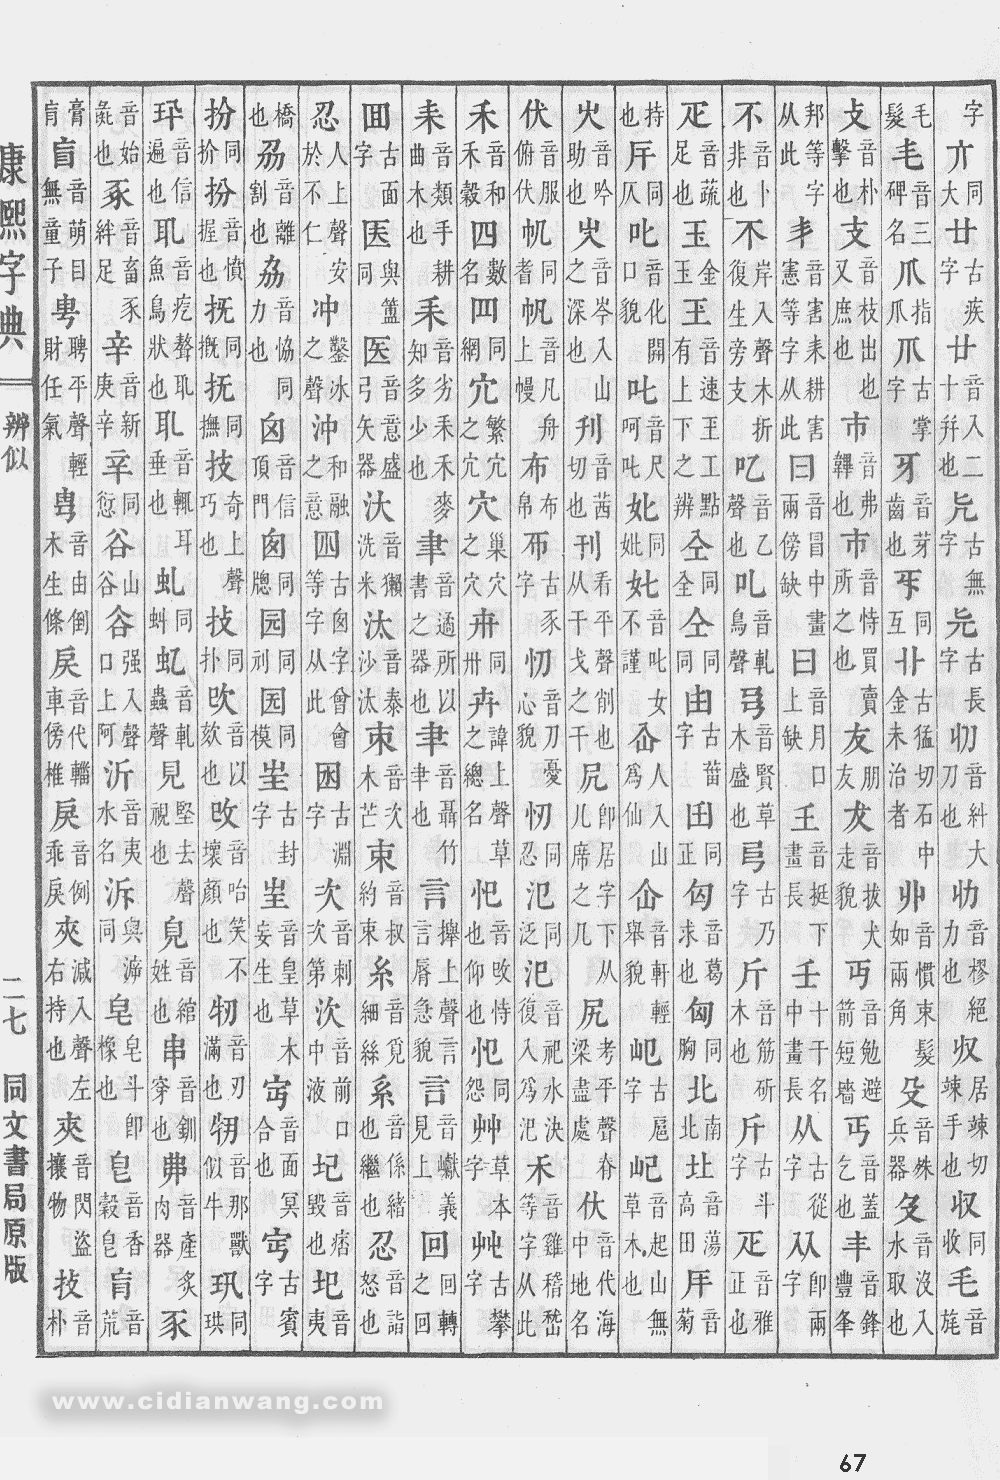 字亣同大廿古疾字廿音入二十幷也旡古無字兂古長字刅音糾大刀也朸音樛絕力也収居竦切竦手也收同收毛音旄
毛髮毛音三碑名爪指爪爪古掌字牙音芽齒也㸦同互卝古猛切石中金未治者丱音慣束髮如兩角殳音殊兵器㕛音沒入水取也
攴音朴擊也支音枝出也又庶也巿音弗韠也市音恃買賣所之也友朋友犮音拔犬走貌丏音勉避箭短墻丐音蓋乞也丰音鋒豐夆
邦等字从此丯音害耒耕害憲等字从此冃音冒中畫兩傍缺曰音月口上缺𡈼音挺下畫長壬十干名中畫長从古從字从即兩字
不音卜非也不岸入聲木旁支折復生吃音乙聲也音軋鳥聲音賢草木盛也古乃字斤音筋斫木也斤古斗字疋音雅正也
疋音蔬足也玉金玉王音速玉工點有上下之辨仝同全仝同同甶古甾字囸同正匃音葛求也匈同胸北南北音蕩高田音菊
持也同仄音化開口貌叱音尺呵叱同妣奼音吒女不謹仚人入山爲仙仚音軒輕舉貌屺古扈字屺音起山無草木也
音吟助也音岑入山之深也刌音茜切也刊看平聲削也从干戈之干凥卽居字下从几席之几尻考平聲脊梁盡處音代海中地名
伏音服俯伏同耆帆音凡舟上幔布布帛古豕字忉音刀憂心貌忍同忍氾同泛汜音祀水決復入爲汜禾音雞稽嵇等字从此
禾音和禾穀四數名罒同網宂繁宂之宂穴巢穴之穴卅同卌卉諱上聲草之總名音改恃也仰也同怨艸草本字古攀字
耒音類手耕曲木也音劣禾禾麥知多少也聿音遹所以書之器也音聶竹聿也言攑上聲言脣急貌言音巘義見上回回轉之回
囬古面字匧與簠同医音意盛弓矢器汏音獺洗米汰音泰沙汰朿音次木芒束音叔約束糸音覓細絲系音係緒也繼也忍音詣怒也
忍人上聲安於不仁冲鑿冰之聲沖和融之意四古囪字曾會等字从此囦古淵字次音刺次第㳄音前口中液圮音痞毀也圯音夷
橋也刕音離割也劦音協同力也囟音信頂門囪同牕园同刓同模古封字㞷音皇草木妄生也音面冥合也古賓字
扮同扮扮音憤握也抚同摡抚同撫技奇上聲巧也技同扑音以欬也音咍笑不壞顏也牣音刃滿也音那獸似牛同珙
音信遍也耴音疙聲耴魚鳥狀也耴音輒耳垂也虬同蚪音軋蟲聲見堅去聲視也音綰姓也串音釧穿也音產炙肉器豕
音始彘也豖音畜豕絆足辛音新庚辛䇂同愆谷山谷强入聲口上阿沂音夷水名泝與泝同皂皂斗卽橡也皀音香穀皀肓音荒
膏肓盲音萌目無童子甹聘平聲輕財任氣音由倒木生條戾音代車傍輜椎戾音例乖戾夾減入聲左右持也音閃盜懷物技音朴
康熙字典 辨似 二七 同文書局原版
www.cidianwang.com
67